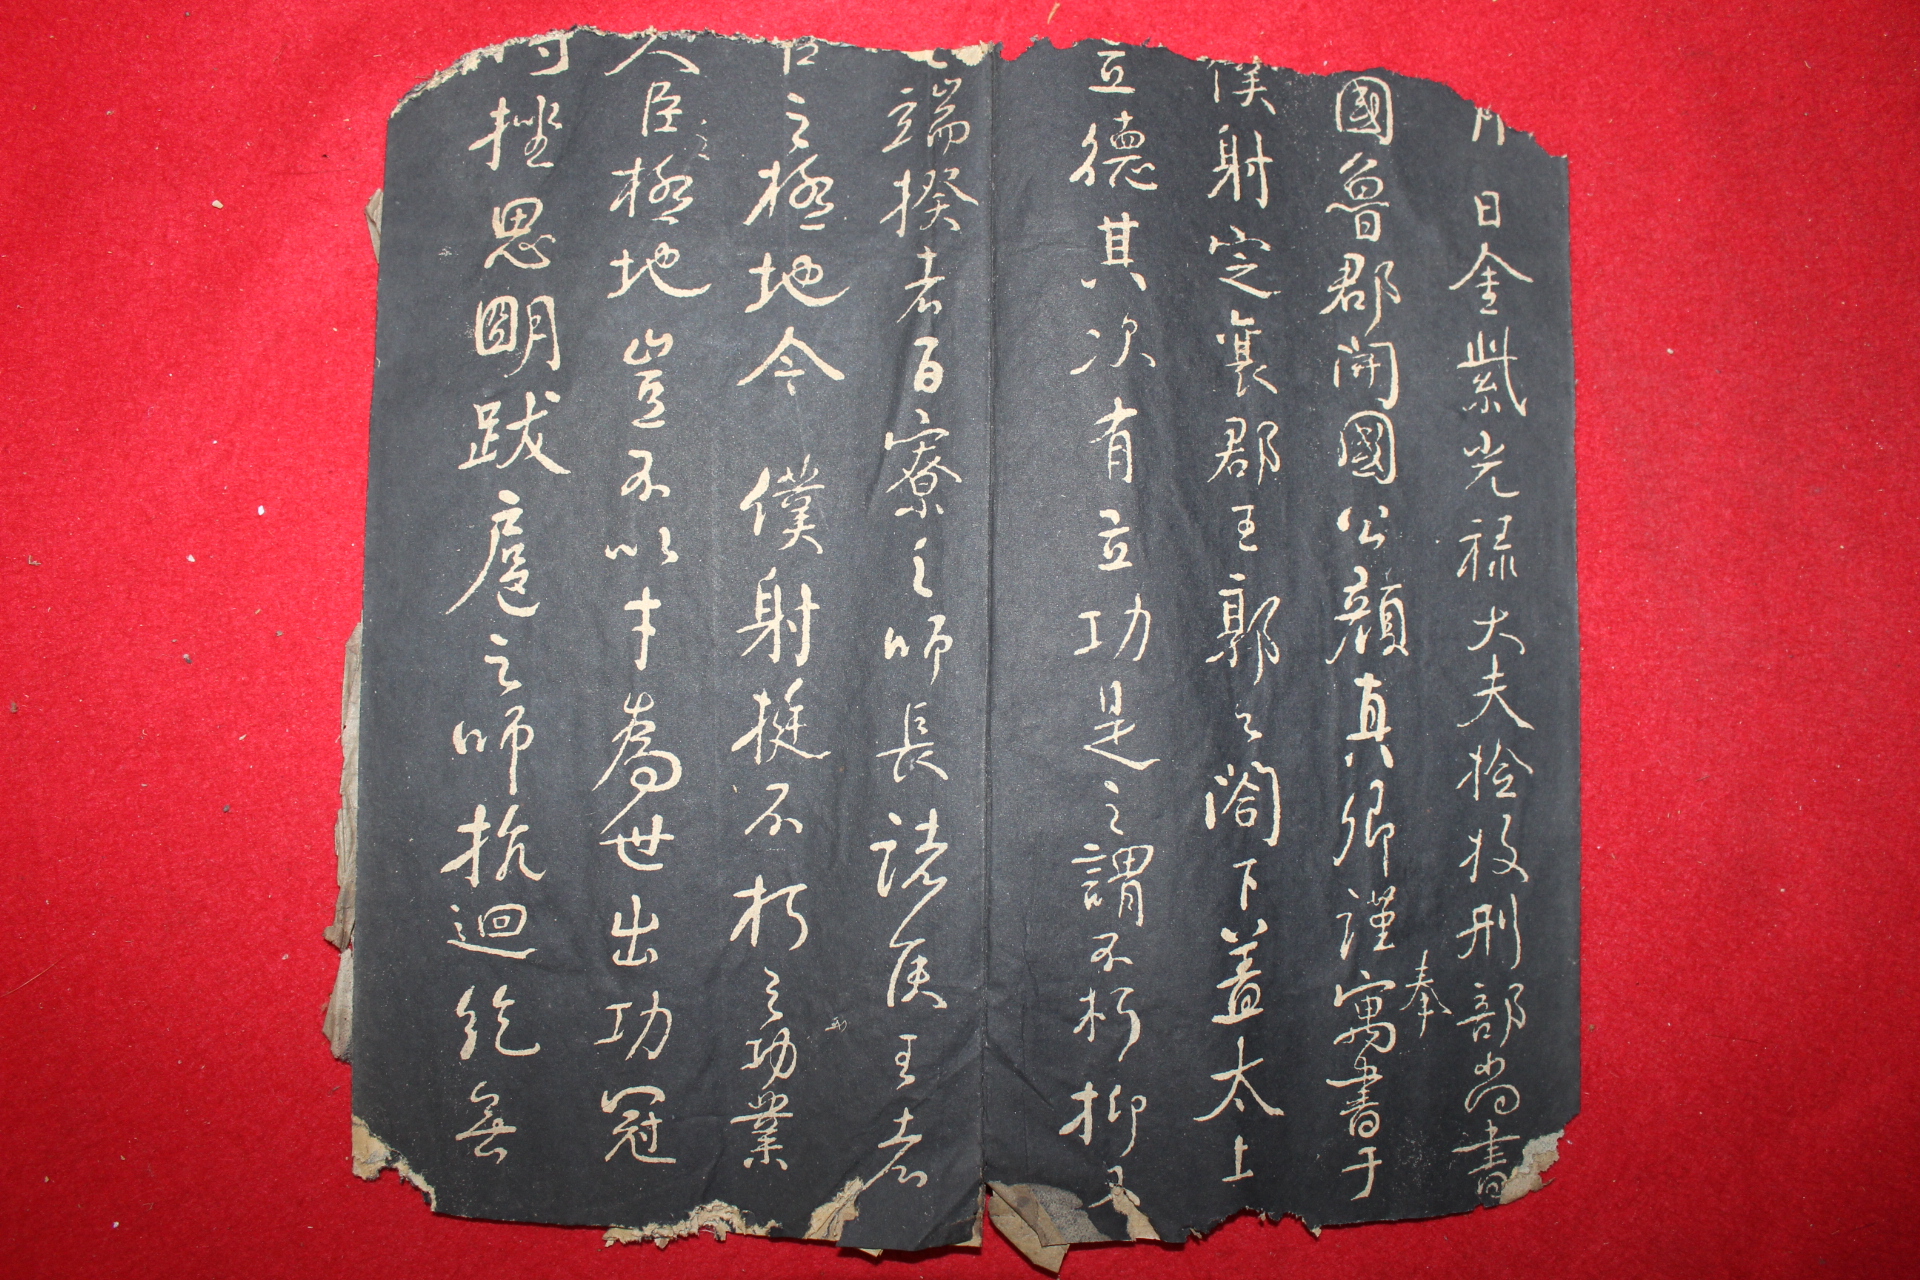 月日金紫光祿大夫撿挍刑部尚書
國魯郡開國公顏真卿謹奉寓書于
僕射定襄郡王郭公閤下蓋太上
立德其次有立功是之謂不朽抑又
之端揆者百寮之師長諸侯王者
臣之極地今僕射挺不朽之功業
人臣極地豈不以才為世出功冠
時挫思明跋扈之師抗迴紇無